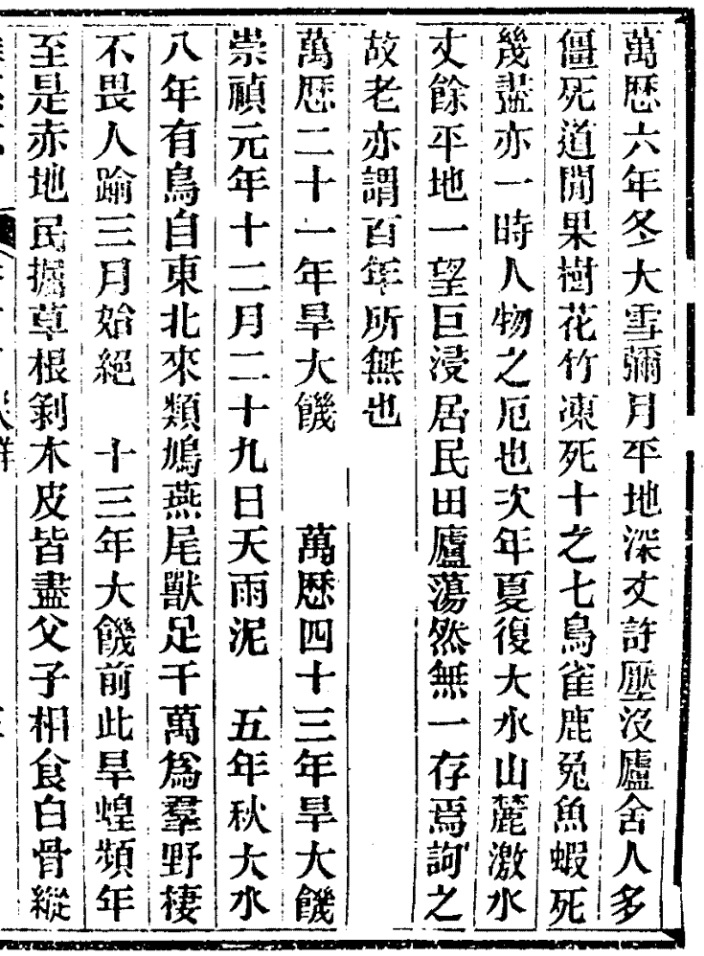 萬歷六年冬大雪彌月平地深丈許壓沒廬舍人多
僵死道閒果樹花竹凍死十之七鳥雀鹿兔魚蝦死
幾盡亦一時人物之厄也次年夏復大水山麓激水
丈餘平地一望巨浸居民田廬蕩然無一存焉詢之
故老亦謂百年所無也
萬歷二十一年旱大饑　萬歷四十三年旱大饑
崇禎元年十二月二十九日天雨泥　五年秋大水
八年有鳥自東北來類鳩燕尾獸足千萬爲羣野棲
不畏人踰三月始絕　十三年大饑前此旱蝗頻年
至是赤地民掘草根剝木皮皆盡父子相食白骨縱